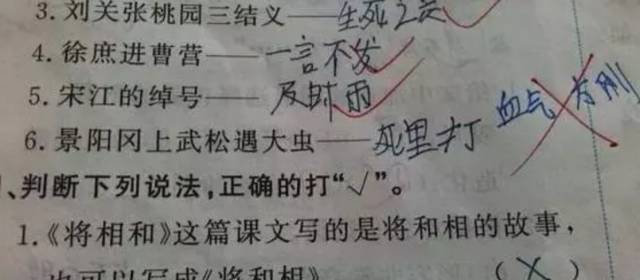 3. 刘关张桃园三结义——生死之交
4. 徐庶进曹营——一言不发
5. 宋江的绰号——及时雨
6. 景阳冈上武松遇大虫——死里打 血气方刚
、判断下列说法,正确的打“√”。
1.《将相和》这篇课文写的是将和相的故事,
也可以写成《将和相》 (×)